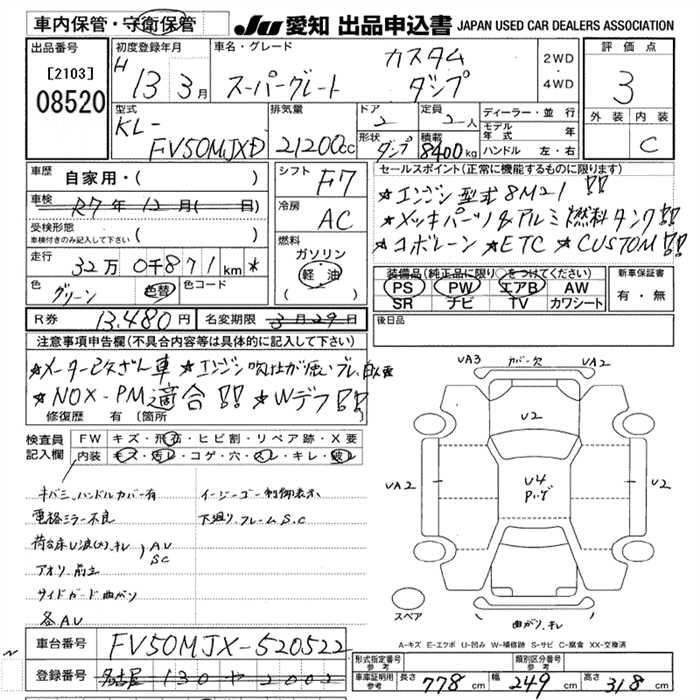 車内保管・守衛保管 JU 愛知 出品申込書 JAPAN USED CAR DEALERS ASSOCIATION
出品番号 初度登録年月 車名・グレード 評価点
[2103] H カスタム 2WD
08520 13 3月 スーパーグレート ダンプ 4WD 3
型式 排気量 ドア 定員 ディーラー・並行 外装 内装
KL- 2 2人 モデル年式 年
FV50MJXD 21200cc 形状 ダンプ 積載 8400kg ハンドル 左・右 C
車歴 自家用・( ) シフト F7 セールスポイント(正常に機能するものに限ります)
車検 R7年12月( 日) ★エンジン型式8M21!!
受検形態 冷房 AC ★メッキパーツ&アルミ燃料タンク!!
車検付きのみ記入して下さい ( ) ★コボレーン ★ETC ★CUSTOM!!
走行 32万0千871km * 燃料 ガソリン 軽油 ( )
装備品(純正品に限り○をつけてください) 新車保証書
色 グリーン 色替 色コード PS PW エアB AW 有・無
SR ナビ TV カワシート
R券 13,480円 名変期限 3月29日 後日品
注意事項申告欄(不具合内容等は具体的に記入して下さい)
★メーター改ざん車 ★エンジン吹け
★NOX-PM適合!! ★Wデフ!!
修復歴 有 〔箇所
UA3 カバー欠 UA2
U2
UA2 U4 U2
検査員記入欄 FW キズ・飛石・ヒビ割・リペア跡・X要
内装 キズ・汚レ・コゲ・穴・スレ・キレ・破レ
キバミ、ハンドルカバー有 イージーゴー制御表示
電格ミラー不良 下廻り、フレームS.C
荷台床U波(大)キレ AU SC
アオリ、前立
サイドガード曲がり
各AU
スペア
曲がり、キレ
A-キズ E-エクボ U-凹み W-補修跡 S-サビ C-腐食 XX-交換済
車台番号 FV50MJX-520522
登録番号 名古屋 130 や 2002
形式指定番号 参考 類別区分番号 参考
車庫証明用参考 長さ 778cm 幅 249cm 高さ 318cm